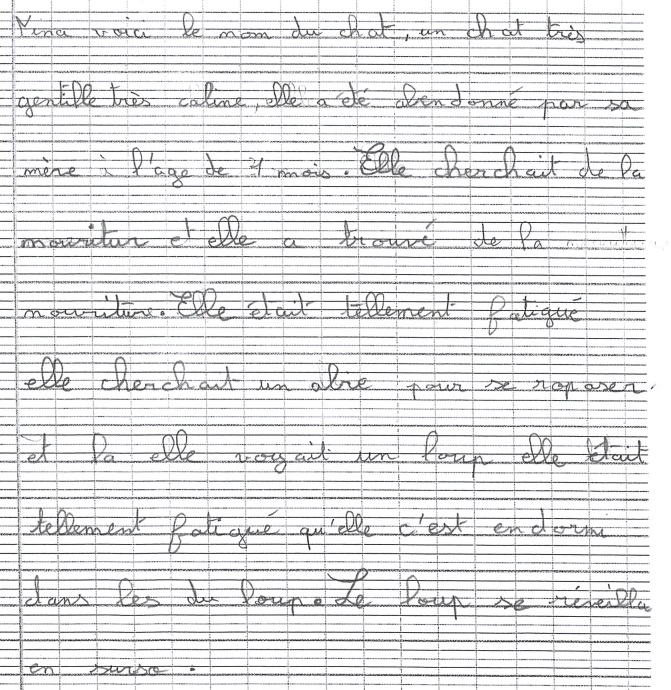 Yina voici le nom du chat, un chat très
gentille très caline, elle a été abendonné par sa
mère à l'age de 4 mois. Elle cherchait de la
nouritur et elle a trouvé de la
nouriture. Elle était tellement fatigué
elle cherchait un abrie pour se roposer
et la elle voyait un loup elle était
tellement fatigué qu'elle c'est endormi
dans les du loup. Le loup se réveilla
en surso.